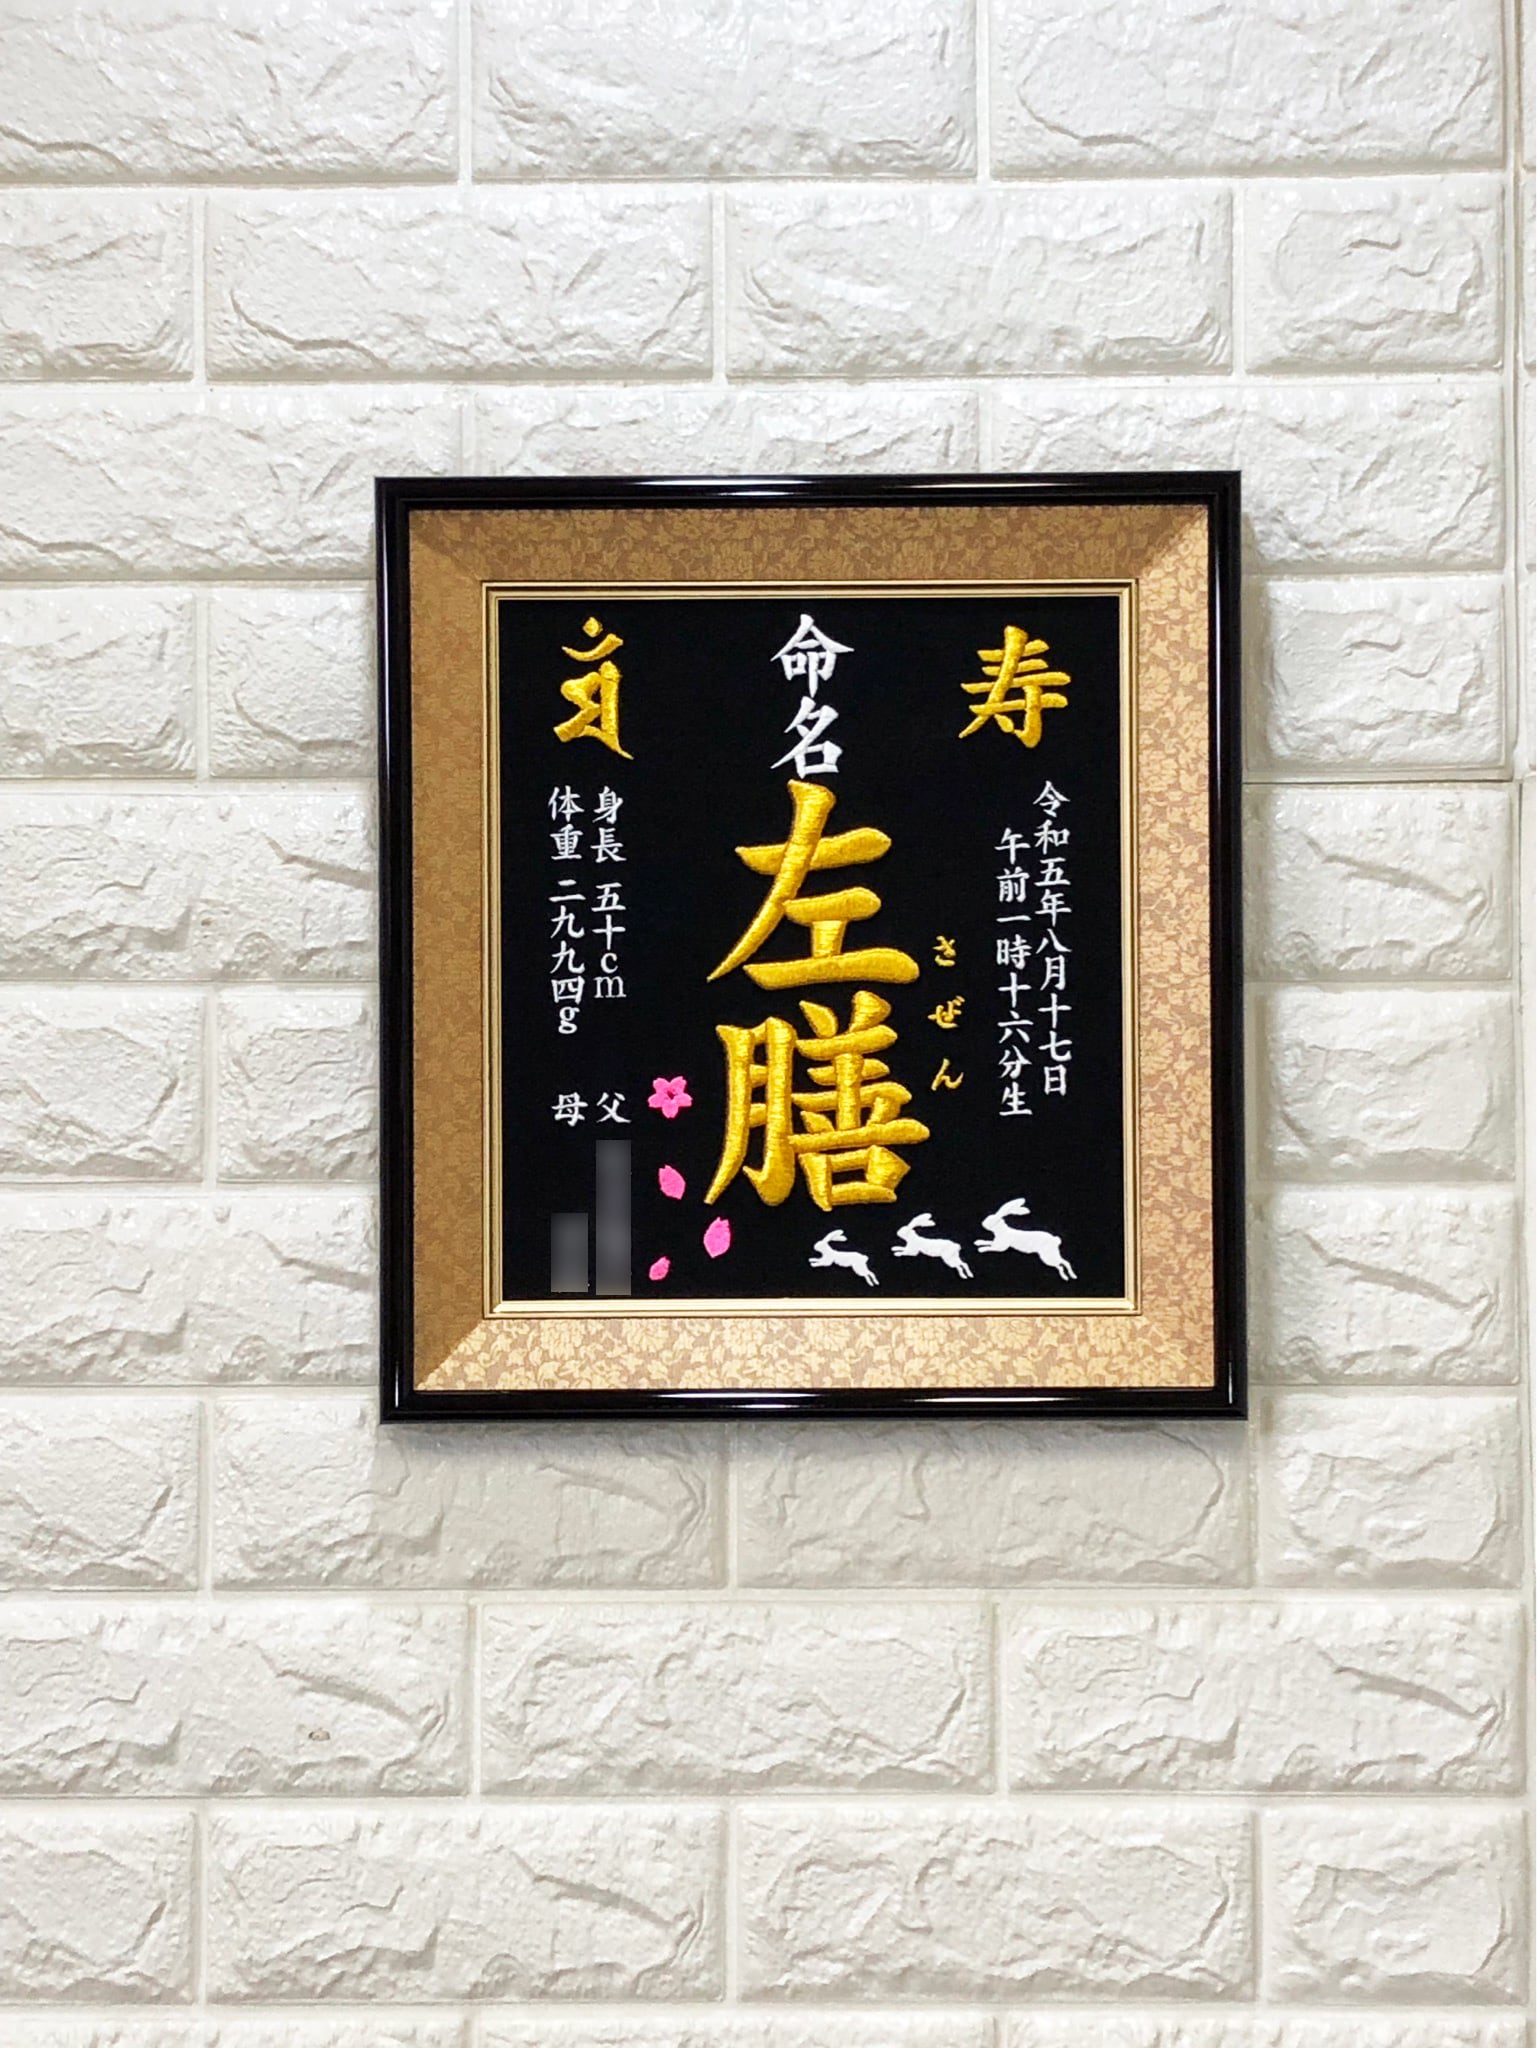 寿
令和五年八月十七日
午前一時十六分生
命名
左膳
さぜん
身長 五十cm
体重 二九九四g
父
母